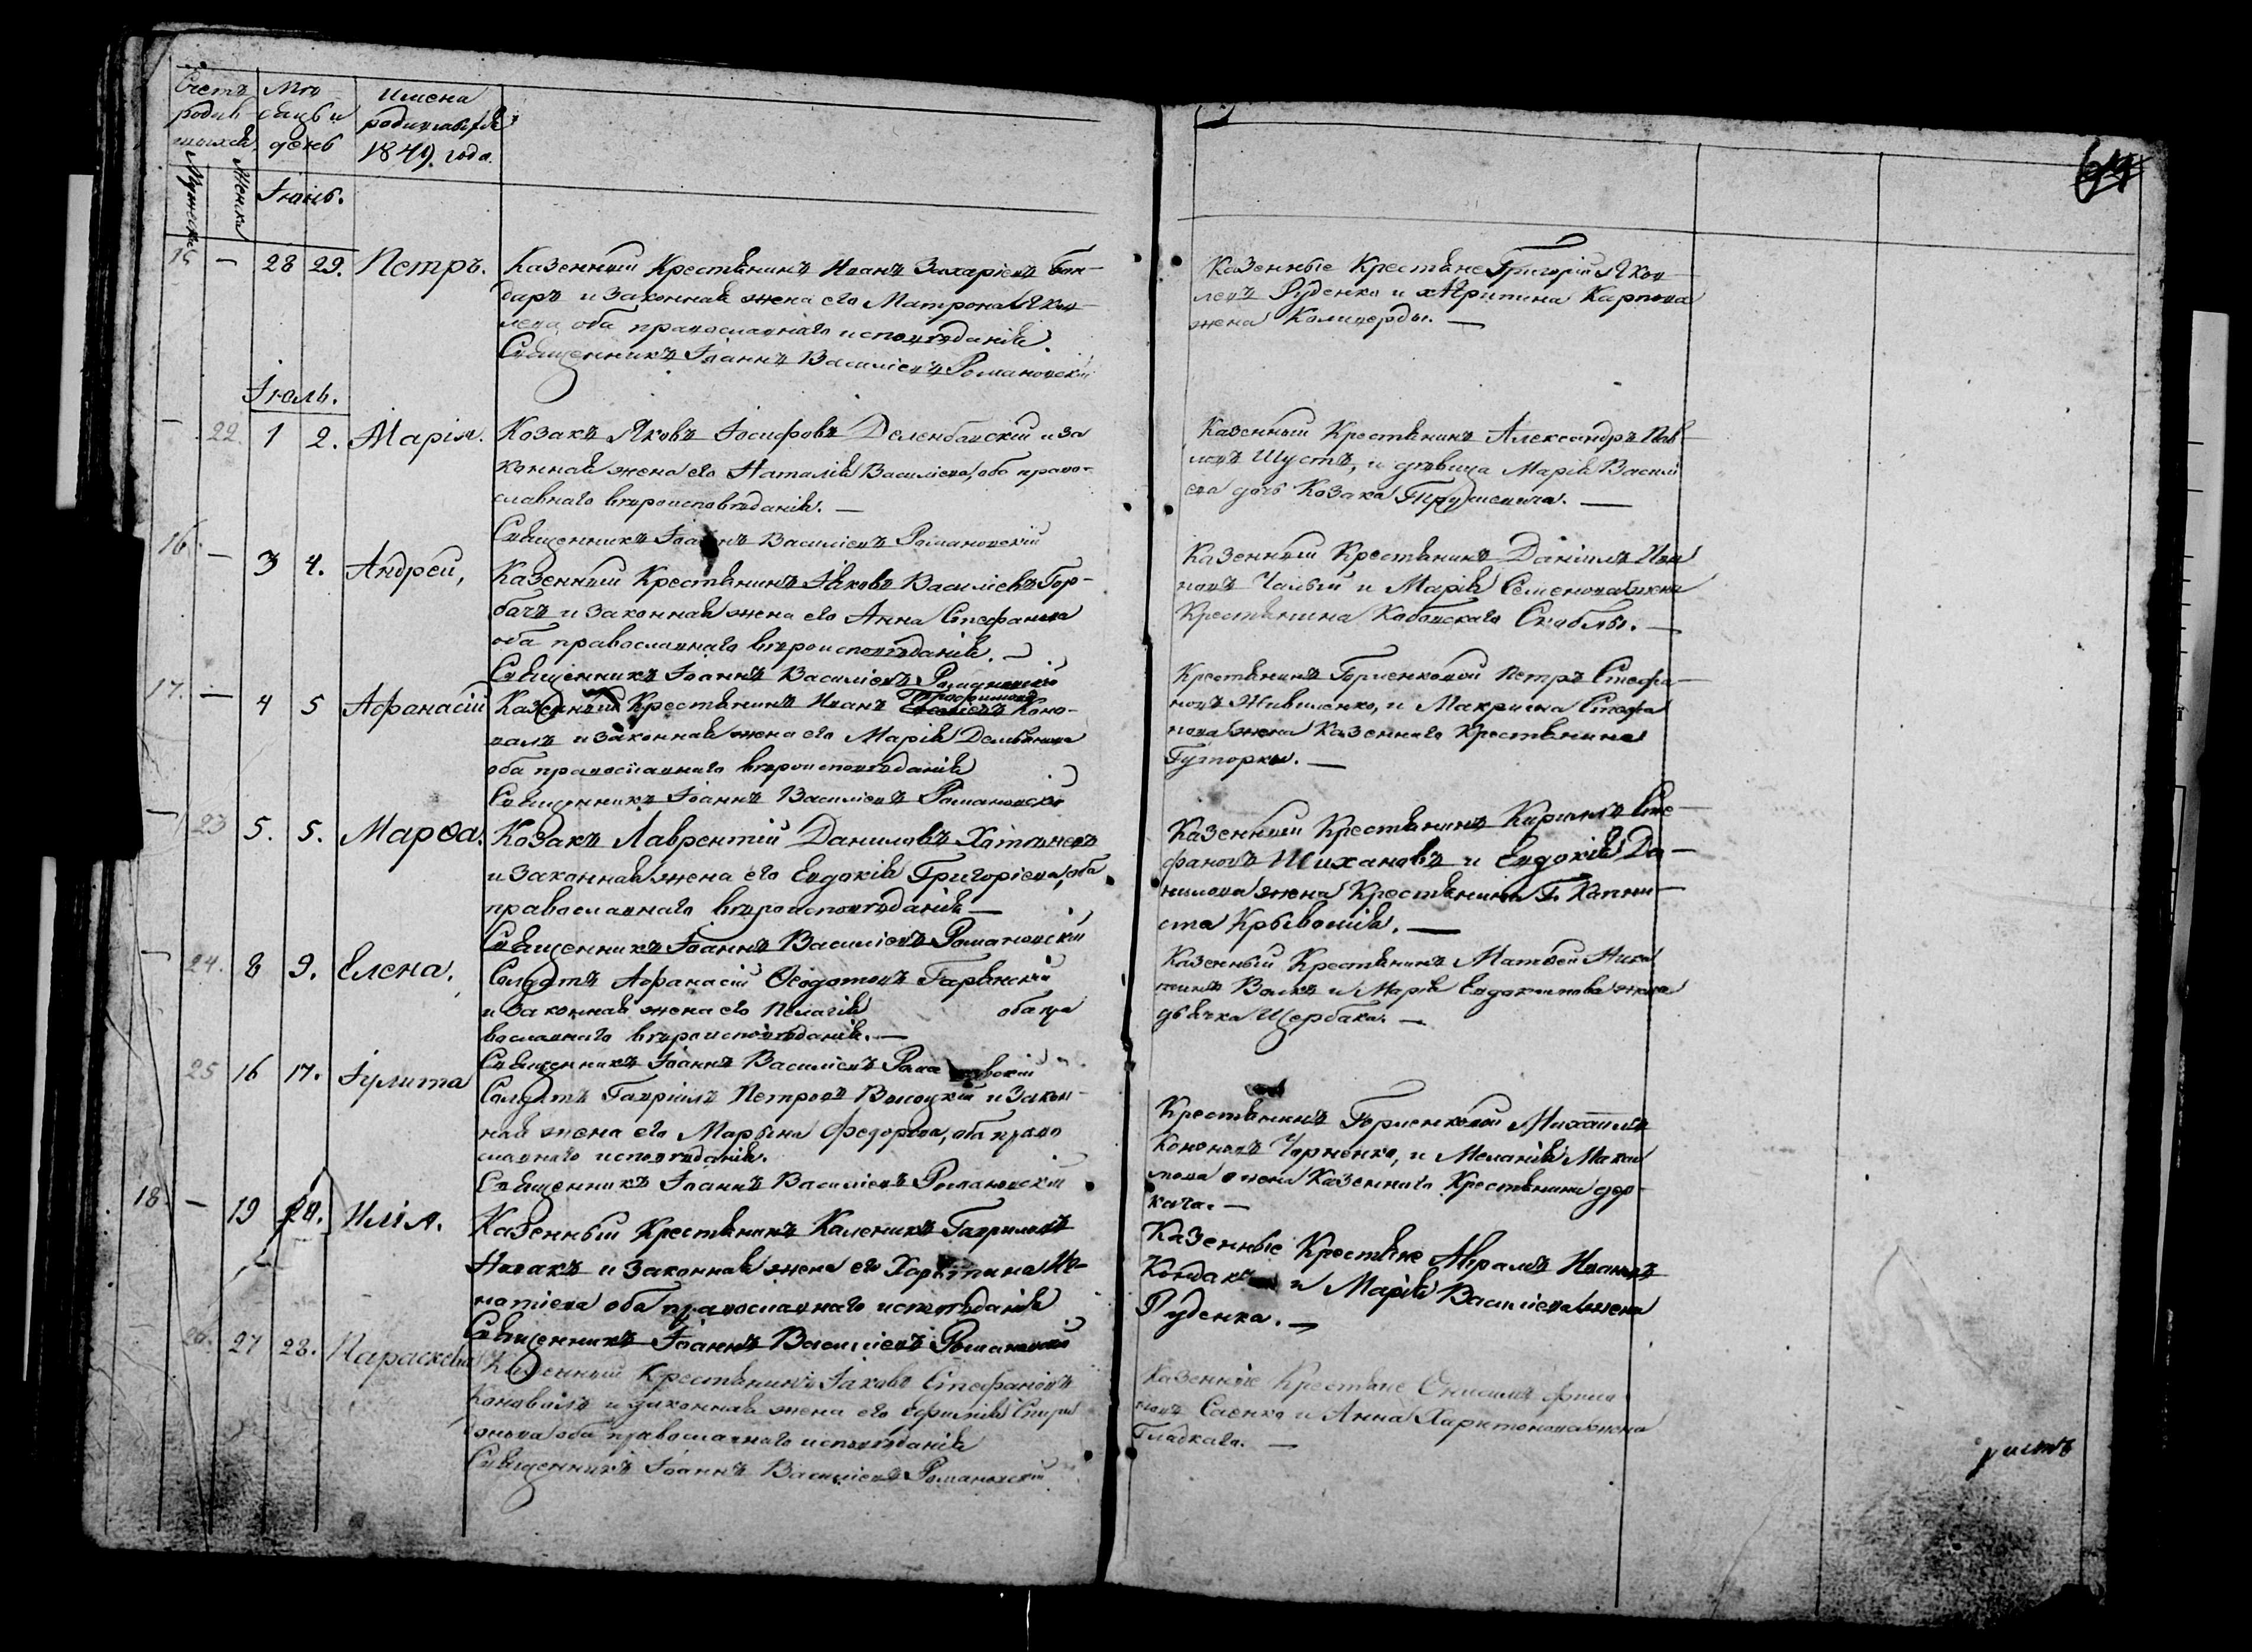 Счетъ родив шихся
Мѣсяцъ и день
Имена родившихся 1849. года.
Мужеска
Женска
Іюнь.
64
15 — 28 29. Петръ.
Казенный Крестьянинъ Иванъ Захаріевъ Бон-
даръ и законная жена его Матрона Яков-
лева, оба православнаго исповѣданія.
Священникъ Іоаннъ Василіевъ Романовскій
Казенные Крестьяне Григорій Яков-
левъ Руденко и Агрипина Карпова
жена
Іюль.
— 22. 1 2. Марія.
Козакъ Яковъ Іосифовъ и за
конная жена его Наталія Василіева, оба право-
славнаго вѣроисповѣданія. —
Священникъ Іоаннъ Василіевъ Романовскій
Казенный Крестьянинъ Александръ Пав-
ловъ Шустъ, и дѣвица Марія Василі
ева дочь Козака
16. — 3 4. Андрей,
Казенный Крестьянинъ Іаковъ Василіевъ Гор-
бачъ и законная жена его Анна Стефанова
оба православнаго вѣроисповѣданія. —
Священникъ Іоаннъ Василіевъ Романовскій
Казенный Крестьянинъ Даніилъ Ива
новъ Чалый и Марія Семенова жена
Крестьянина Скоблы. —
17. — 4 5 Афанасій
Казенный Крестьянинъ Иванъ Трофимовъ Коно-
валъ и законная жена его Марія Демьянова
оба православнаго вѣроисповѣданія
Священникъ Іоаннъ Василіевъ Романовскій
Крестьянинъ Горленковой Петръ Стефа-
новъ и Макрина Стефа
нова жена Казеннаго Крестьянина
Гуторки. —
— 23 5. 5. Марѳа.
Козакъ Лаврентій Даниловъ
и законная жена его Евдокія Григоріева, оба
православнаго вѣроисповѣданія —
Священникъ Іоаннъ Василіевъ Романовскій
Казенный Крестьянинъ Кирилъ Сте-
фановъ Шихановъ и Евдокія Да-
нилова жена Крестьянина Г. Капни-
ста
— 24. 8 9. Елена.
Солдатъ Афанасій Ѳеодотовъ
и законная жена его Пелагія оба пра
вославнаго вѣроисповѣданія. —
Священникъ Іоаннъ Василіевъ Романовскій
Казенный Крестьянинъ Матвей Ники
тинъ Волкъ и Марія Евдокимова жена
дьячка Щербака. —
25 16 17. Іулита
Солдатъ Гавріилъ Петровъ Высоцкій и закон-
ная жена его Марѳина Федорова, оба право
славнаго исповѣданія.
Священникъ Іоаннъ Василіевъ Романовскій
Крестьянинъ Горленковой Михаилъ
Кононовъ Черненко, и Меланія Макси
мова жена Казеннаго Крестьянина дер-
кача. —
18. — 19 20. Илія.
Казенный Крестьянинъ Каленикъ Гавриловъ
Новакъ и законная жена его Харитина Иг-
натіева оба православнаго исповѣданія
Священникъ Іоаннъ Василіевъ Романовскій
Казенные Крестьяне Абрамъ Ивановъ
Кондакъ и Марія Василіева жена
Руденка. —
26. 27 28. Параскевія
Казенный Крестьянинъ Іаковъ Стефановъ
Коновалъ и законная жена его Ефимія Спири
донова оба православнаго исповѣданія
Священникъ Іоаннъ Василіевъ Романовскій
Казенные Крестьяне Онисимъ
Саенко и Анна Харитонова жена
Гладкаго. —